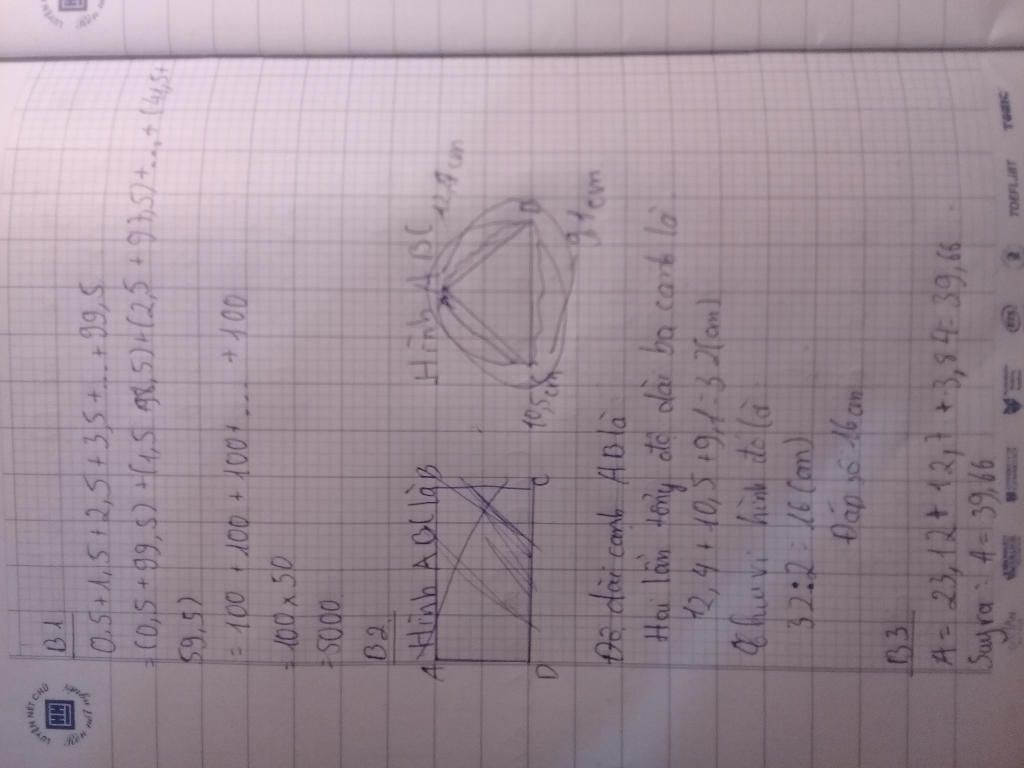 LUYỆN NÉT CHỮ
HH
Rèn nết người
B1
0,5+1,5+2,5+3,5+....+99,5
=(0,5+99,5)+(1,5 98,5)+(2,5+97,5)+...+(41,5+
59,5)
=100+100+100+....+100
=100×50
=5000
B2
Hình ABC là
A B
D C
Hình ABC
12,4 cm
10,5 cm
9,1 cm
B
Độ dài cạnh AB là
Hai lần tổng độ dài ba cạnh là
12,4+10,5+9,1=32(cm)
Chu vi hình đó là
32:2=16(cm)
Đáp số 16 cm
B3
A=23,12+12,7+3,84=39,66
Suy ra: A=39,66
TOEFL iBT
TOEIC